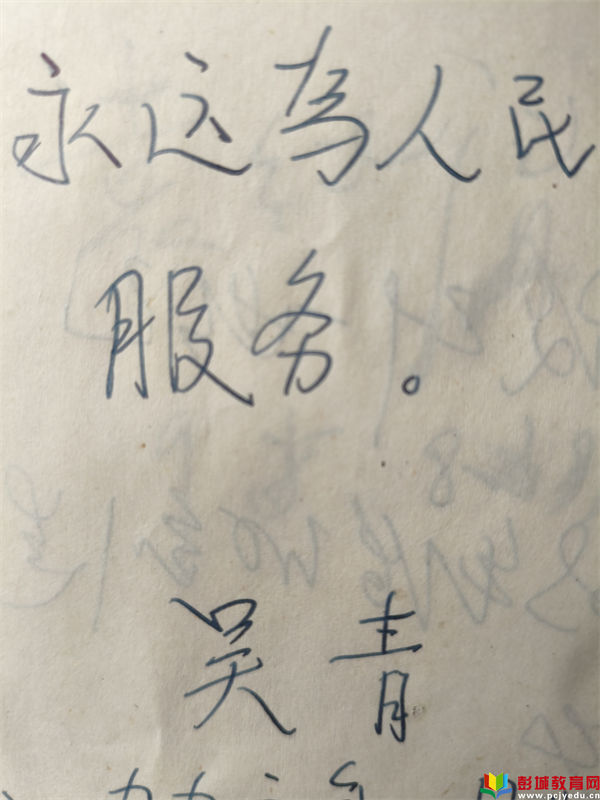 永远为人民
服务。
吴青
彭城教育网
www.pcjyedu.cn